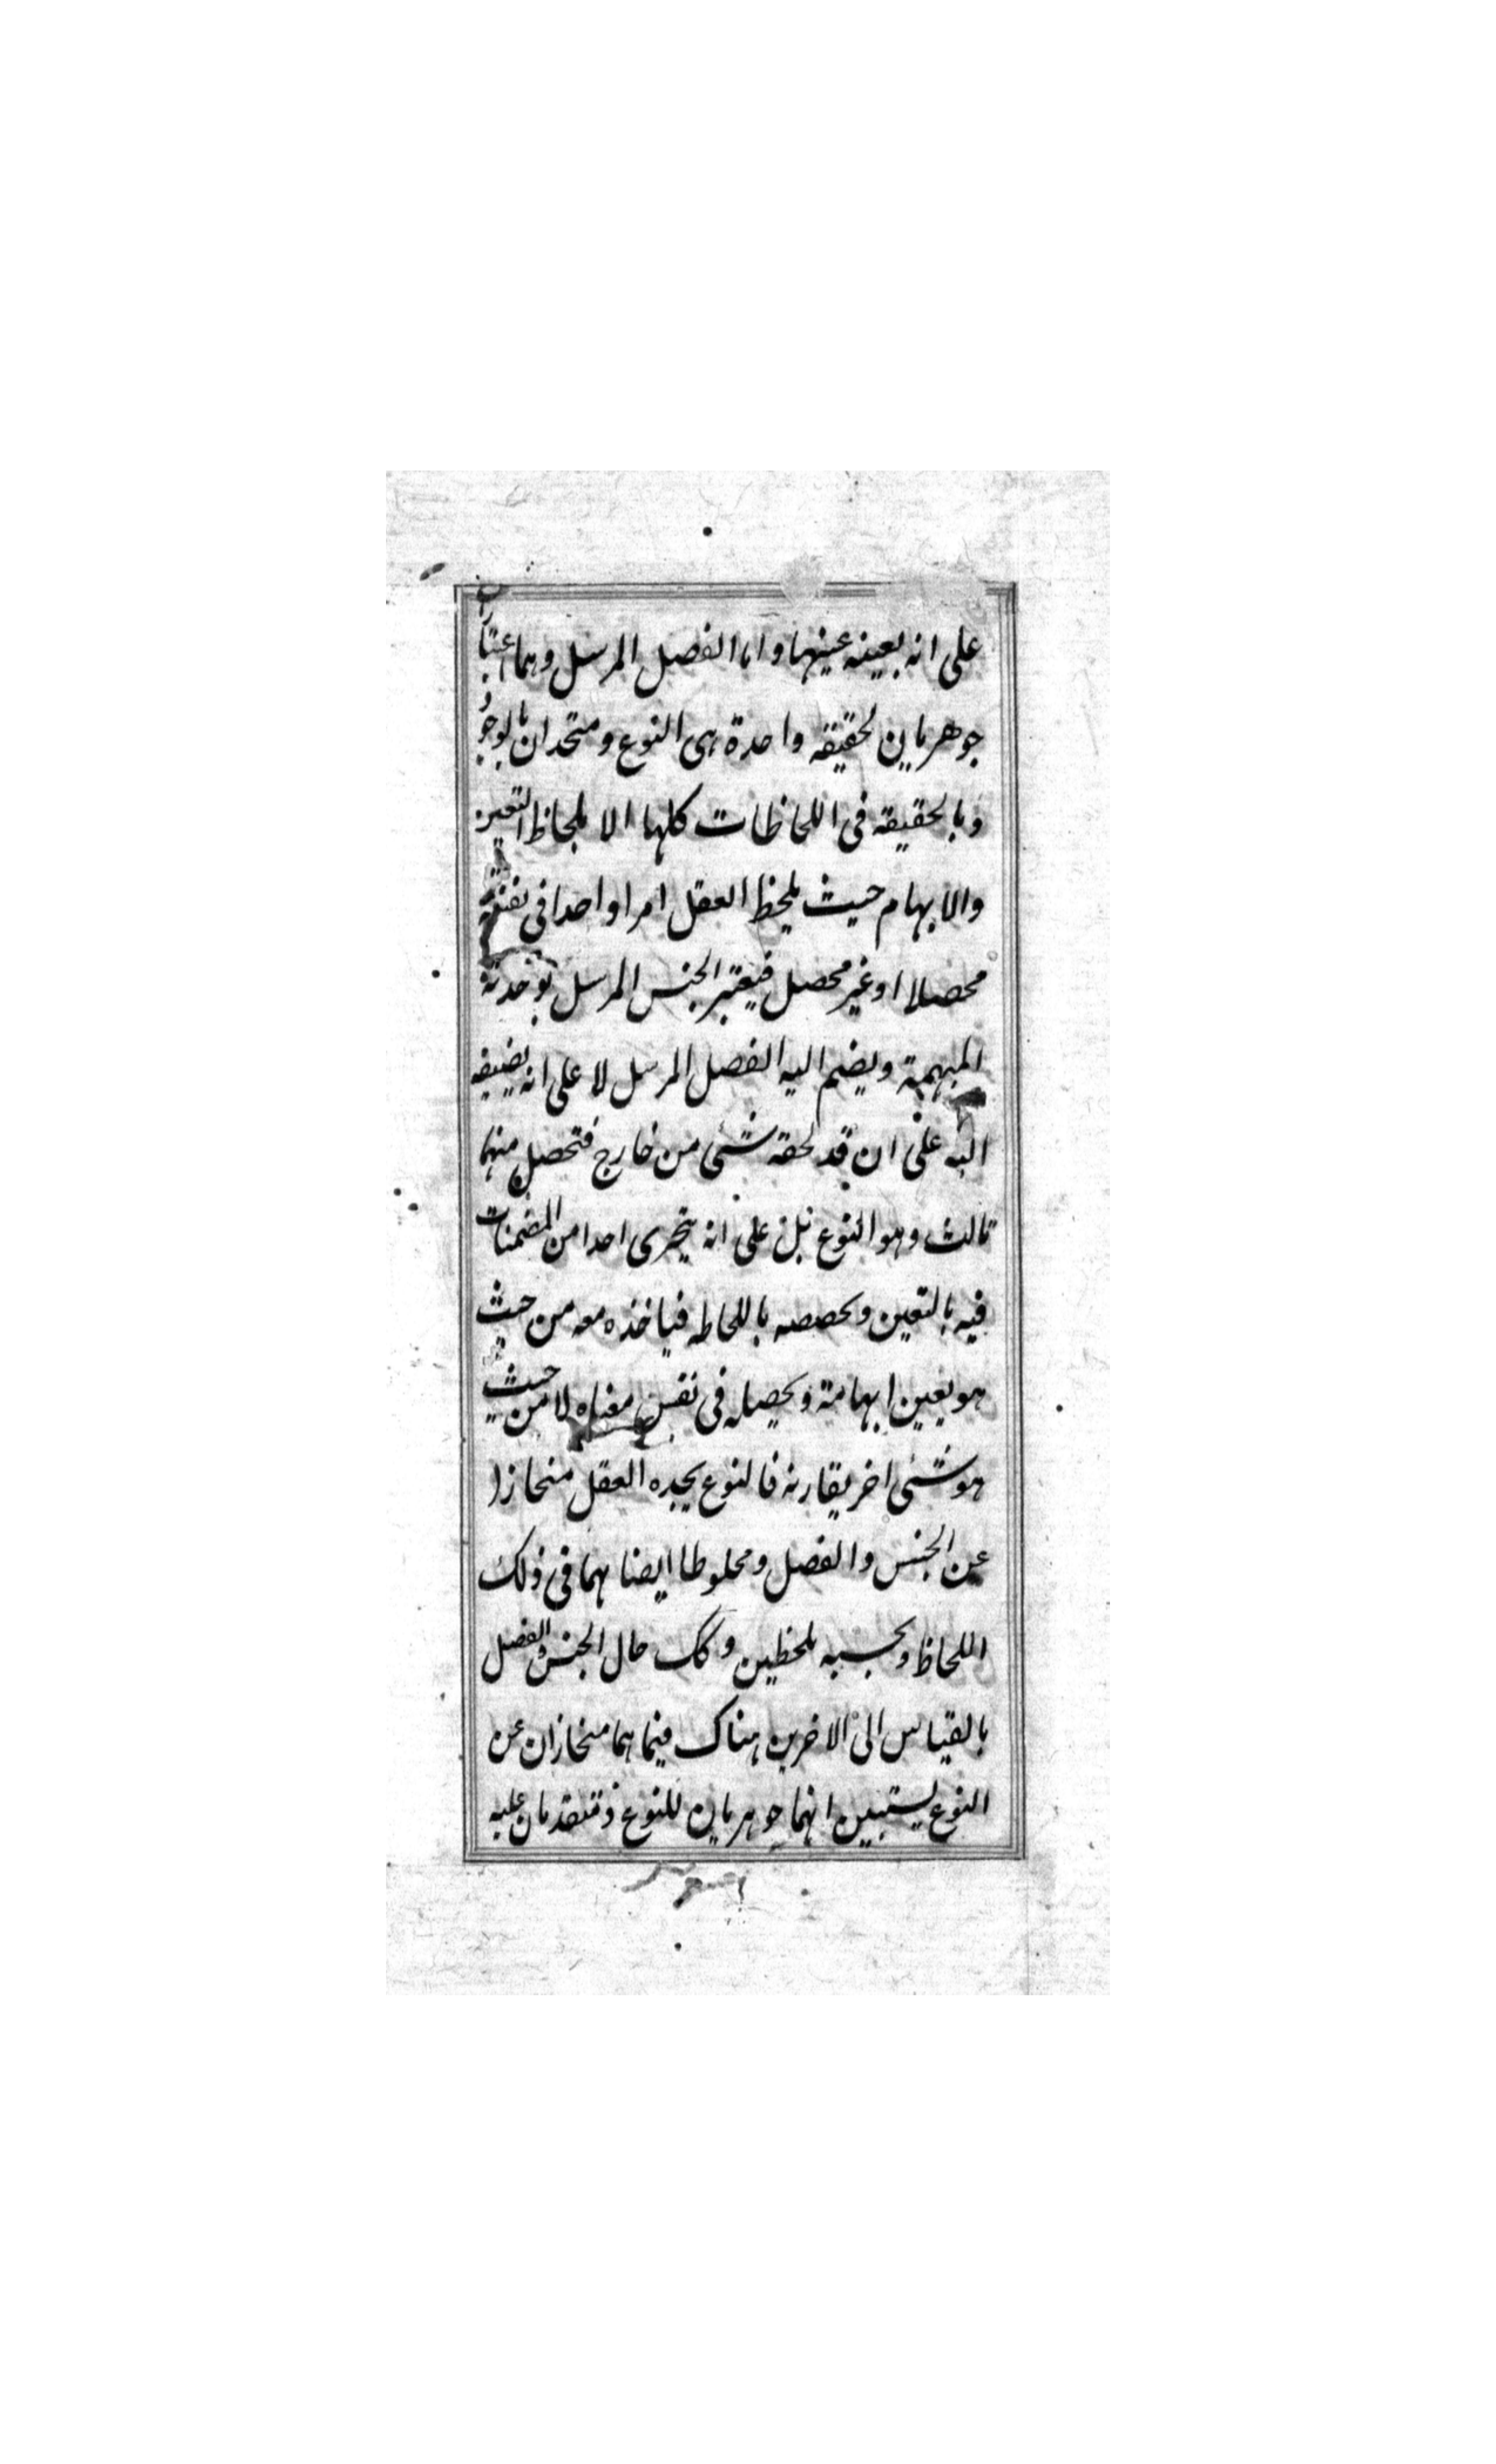 على انه بعينه عينها واما الفصل المرسل وهما اعتباران
جوهريان لحقيقه واحدة هى النوع ومتحدان بالوجود
وبالحقيقه فى اللحاظات كلها الا بلحاظ التعين
والابهام حيث يلحظ العقل امرا واحدا فى نفسه
محصلا اوغير محصل فيعتبر الجنس المرسل بوحدته
المبهمة ويضم اليه الفصل المرسل لا على انه يضيفه
اليه على ان قد لحقه شئى من خارج فتحصل منهما
ثالث وهو النوع بل على انه يتحرى احدا من المضمنات
فيه بالتعين وحصصه باللحاظ فياخذه معه من حيث
هو يعين ابهامة ويحصله فى نفس معناه لا من حيث
هو شئى اخر يقارنه فالنوع يجده العقل منحازا
عن الجنس والفصل ومخلوطا ايضا بهما فى ذلك
اللحاظ وبحسبه بلحظين وكك حال الجنس والفصل
بالقياس الى الاخرين هناك فيما هما منحازان عن
النوع يستبين انهما جوهريان للنوع ومتقدمان عليه